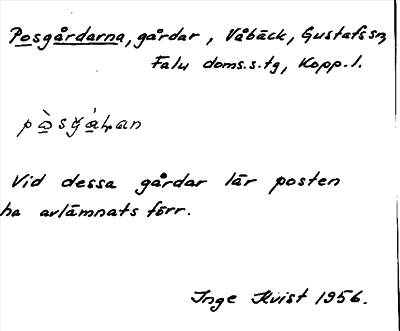 Posgårdarna, gårdar, Våbäck, Gustafs sn,
Falu doms.s.tg, Kopp. l.
Vid dessa gårdar lär posten
ha avlämnats förr.
Inge Kvist 1956.